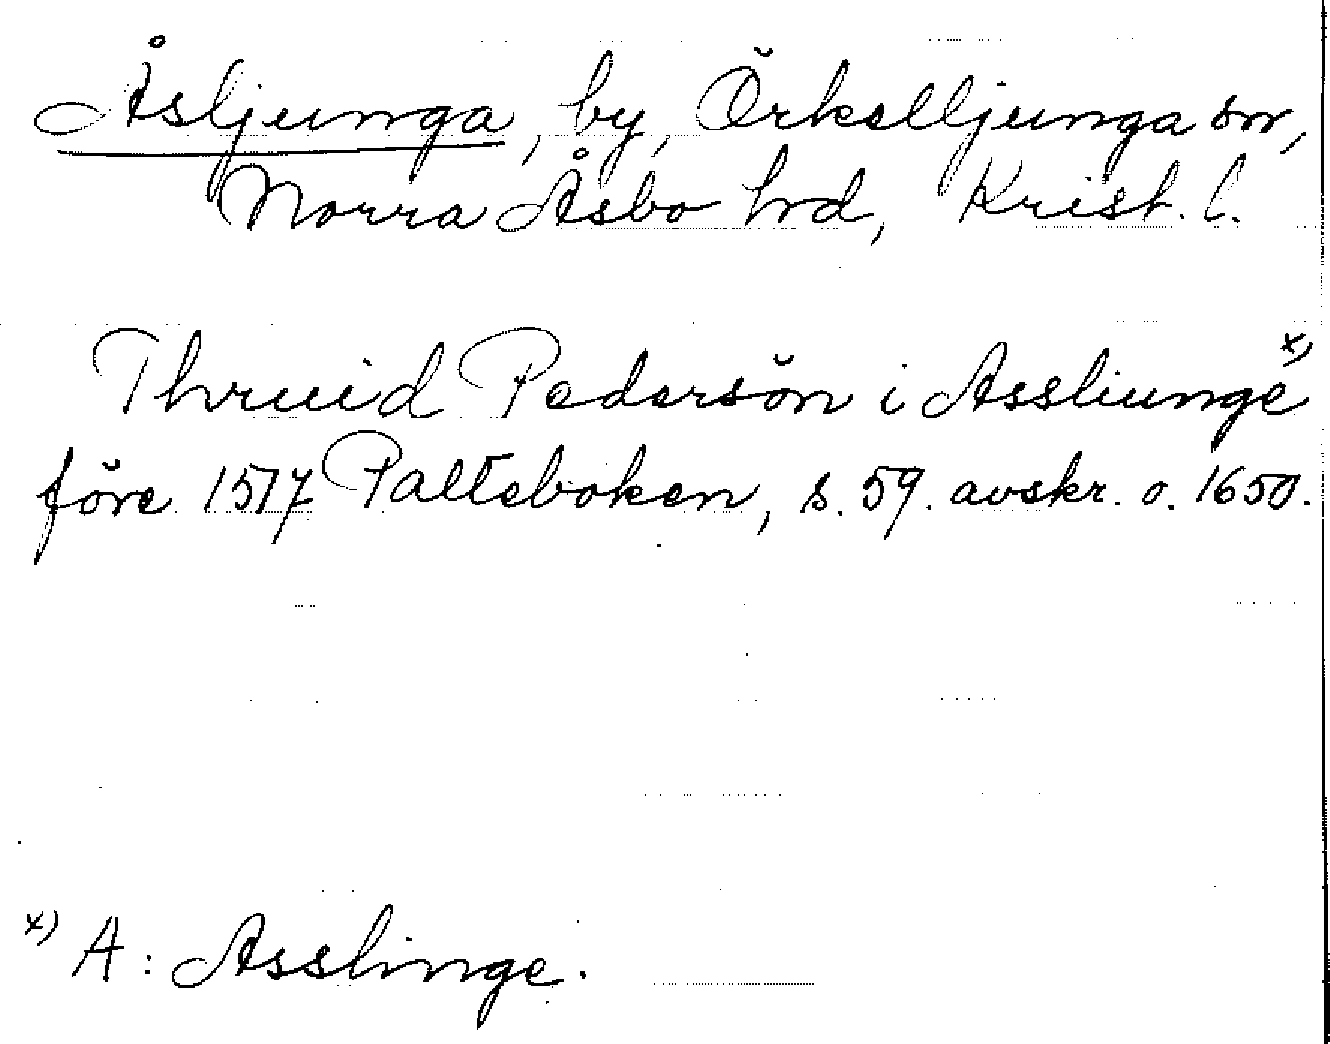 Åsljunga, by, Örkelljunga sn,
Norra Åsbo hd, Krist. l.
Thruid Pedersön i Assliunge x)
före 1517 Palteboken, s. 59. avskr. o. 1650.
x) A: Asslinge.